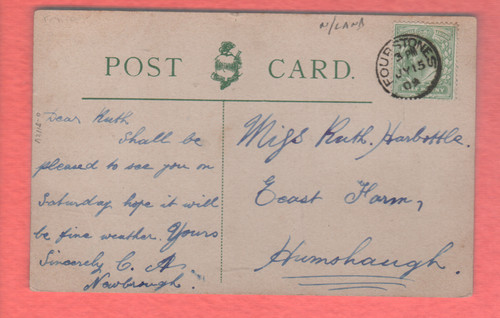 N/LAND
POST CARD.
FOURSTONES
JY 15
08
Dear Ruth
Shall be
pleased to see you on
Saturday, hope it will
be fine weather. Yours
Sincerely C. A.
Newbrough.
Miss Ruth. Harbottle.
East Farm,
Humshaugh.